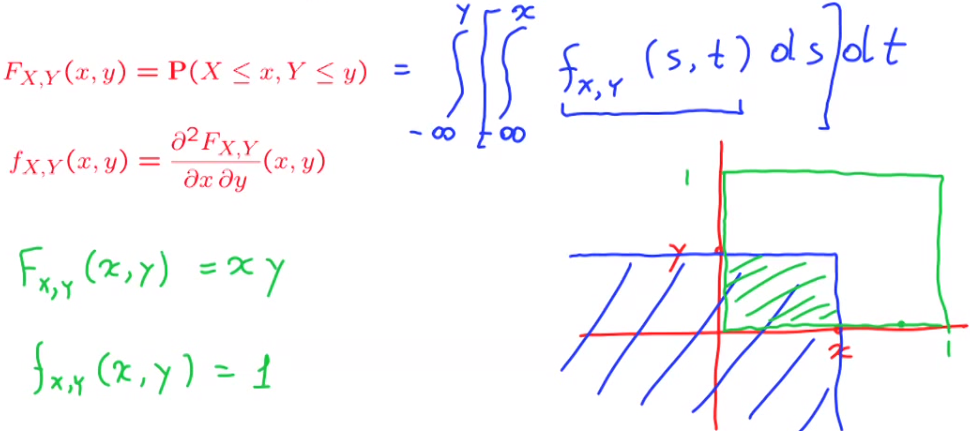 F_{X,Y}(x, y) = P(X ≤ x, Y ≤ y) = ∫_{-∞}^{y} [ ∫_{-∞}^{x} f_{X,Y}(s, t) ds ] dt
f_{X,Y}(x, y) = ∂²F_{X,Y}/∂x ∂y (x, y)
F_{X,Y}(x, y) = x y
f_{X,Y}(x, y) = 1
1
y
x
1